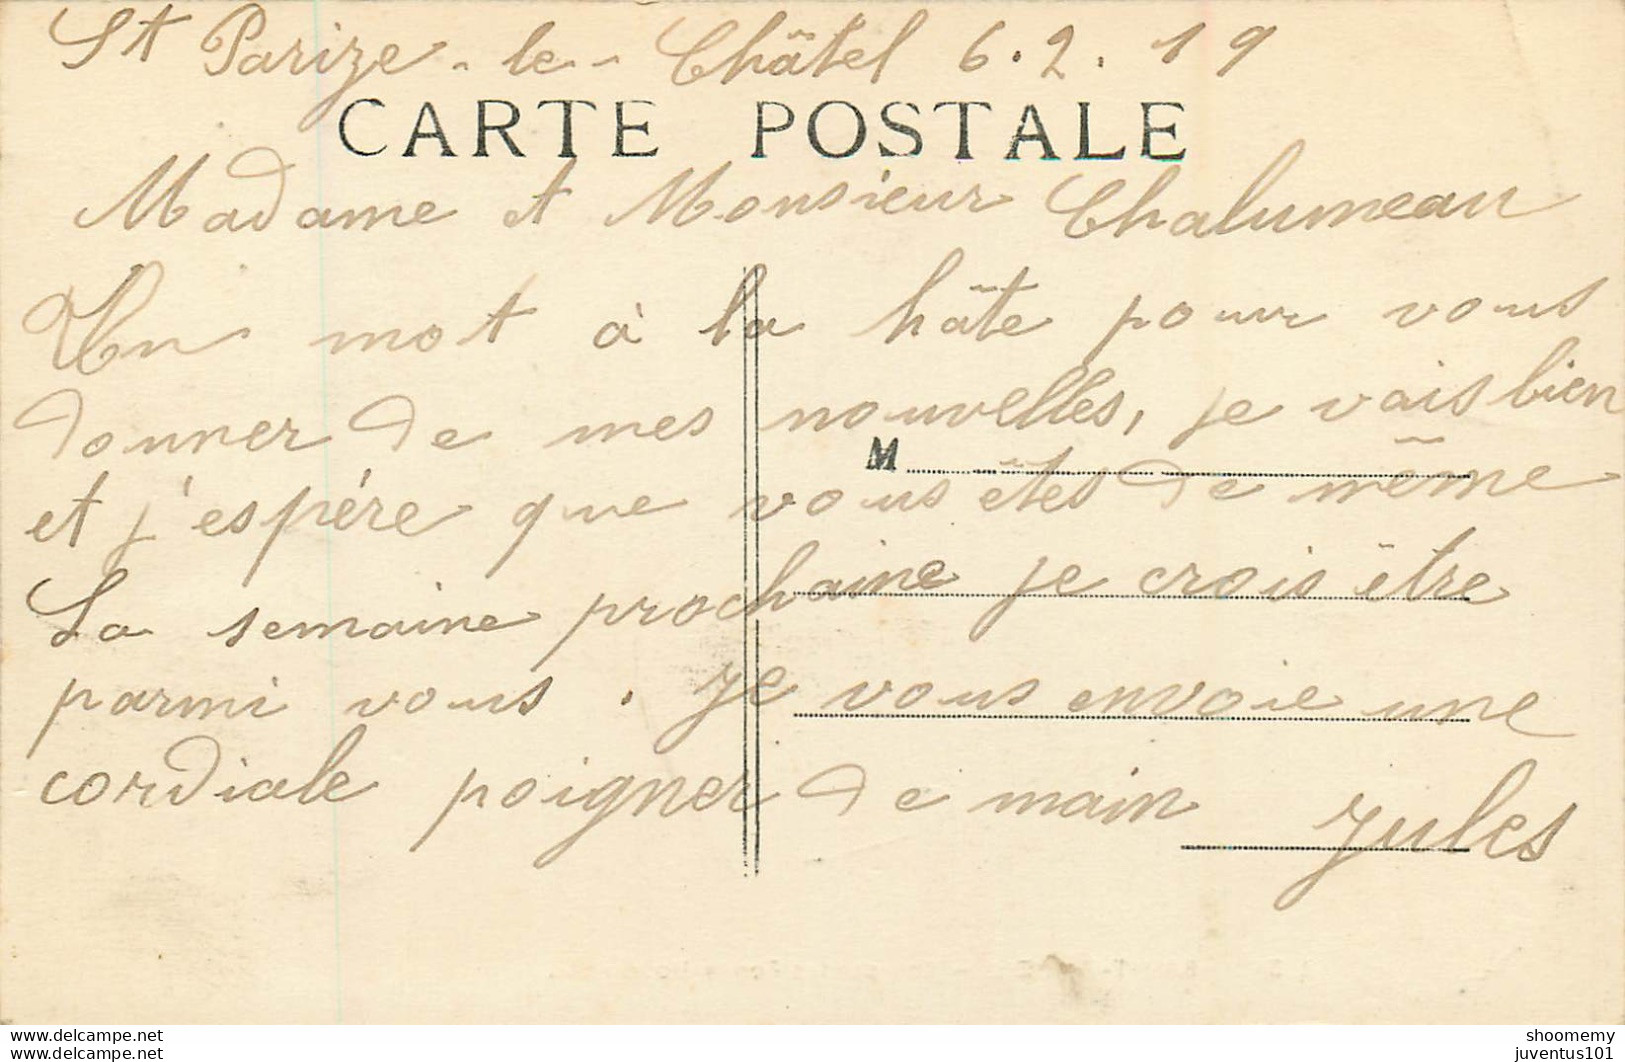 St Parize-le-Châtel 6.2.19
CARTE POSTALE
Madame et Monsieur Chalumeau
Un mot à la hâte pour vous
donner de mes nouvelles, je vais bien
M
et j'espére que vous êtes de même
La semaine prochaine je crois être
parmi vous. Je vous envoie une
cordiale poigner de main Jules
www.delcampe.net
www.delcampe.net
shoomemy
juventus101